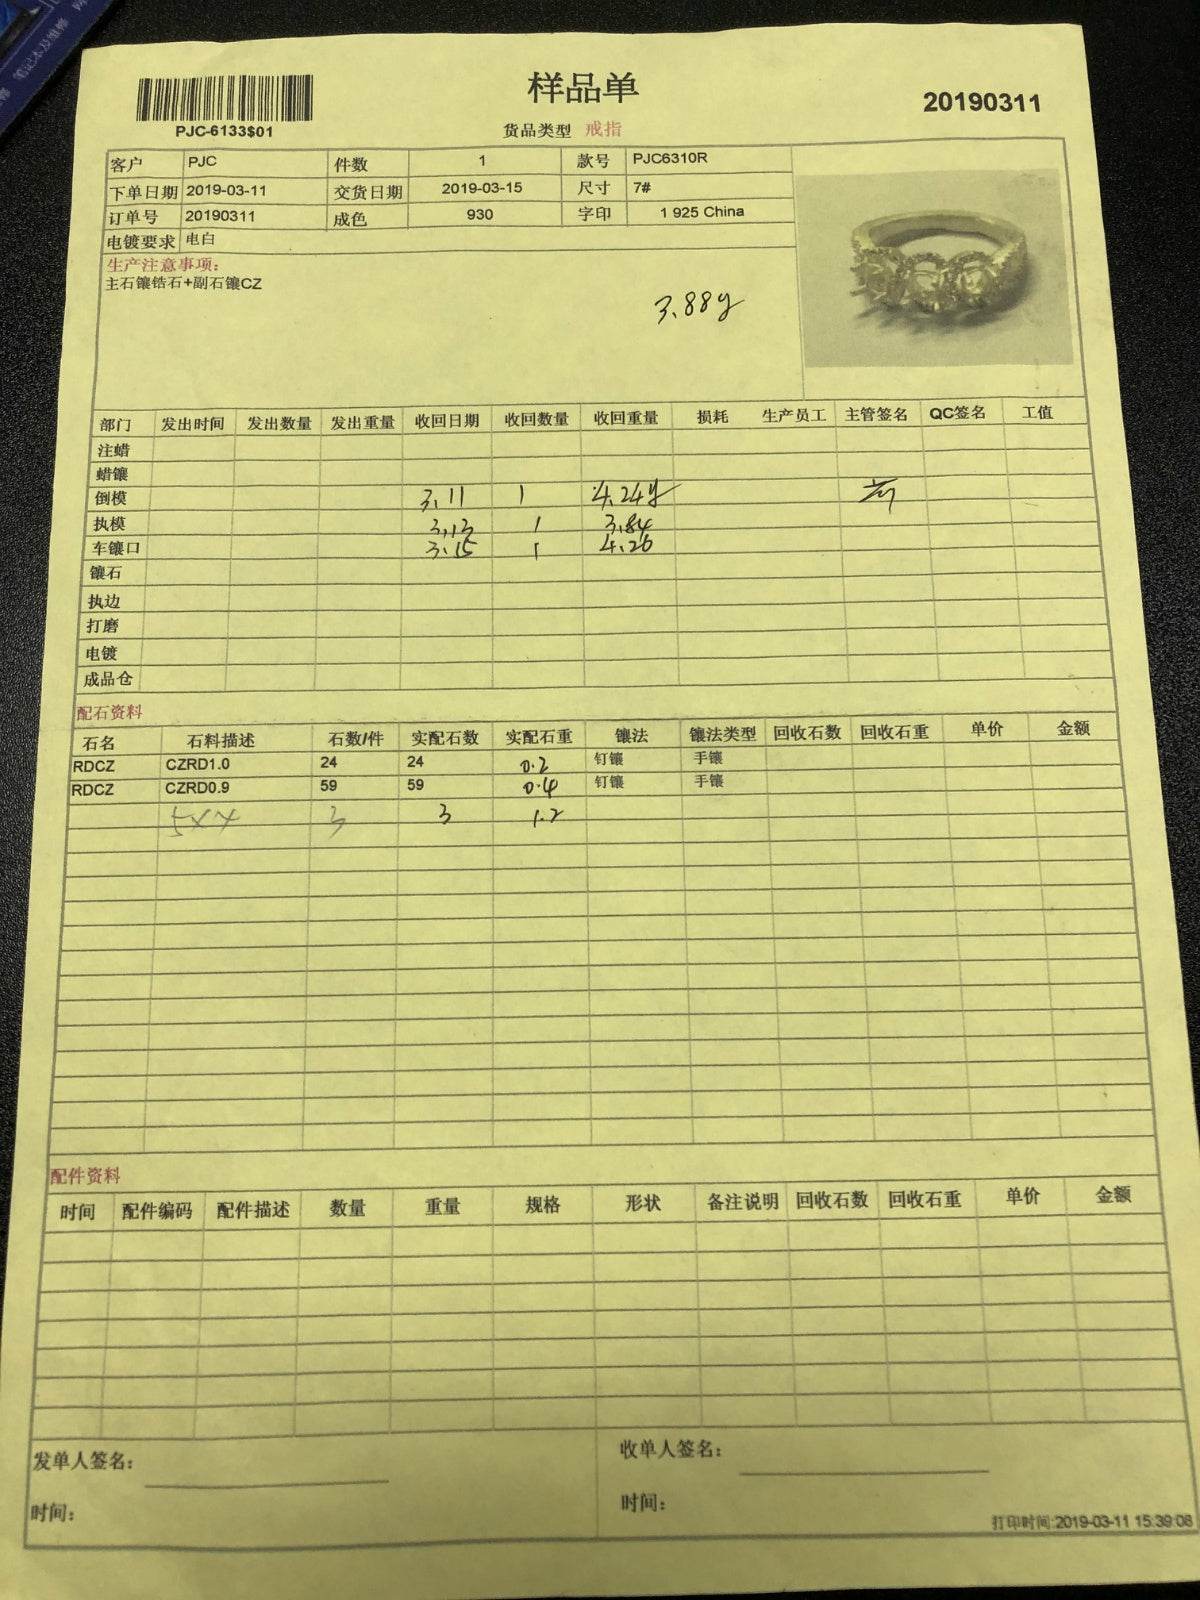 笔记本及维修
样品单
20190311
PJC-6133$01
货品类型 戒指
客户 PJC 件数 1 款号 PJC6310R
下单日期 2019-03-11 交货日期 2019-03-15 尺寸 7#
订单号 20190311 成色 930 字印 1 925 China
电镀要求 电白
生产注意事项:
主石镶锆石+副石镶CZ
3.88g
部门 发出时间 发出数量 发出重量 收回日期 收回数量 收回重量 损耗 生产员工 主管签名 QC签名 工值
注蜡
蜡镶
倒模 3.11 1 4.24g
执模 3.13 1 3.84
车镶口 3.15 1 4.26
镶石
执边
打磨
电镀
成品仓
配石资料
石名 石料描述 石数/件 实配石数 实配石重 镶法 镶法类型 回收石数 回收石重 单价 金额
RDCZ CZRD1.0 24 24 0.2 钉镶 手镶
RDCZ CZRD0.9 59 59 0.4 钉镶 手镶
5×4 3 3 1.2
配件资料
时间 配件编码 配件描述 数量 重量 规格 形状 备注说明 回收石数 回收石重 单价 金额
发单人签名: 收单人签名:
时间: 时间:
打印时间:2019-03-11 15:39:08